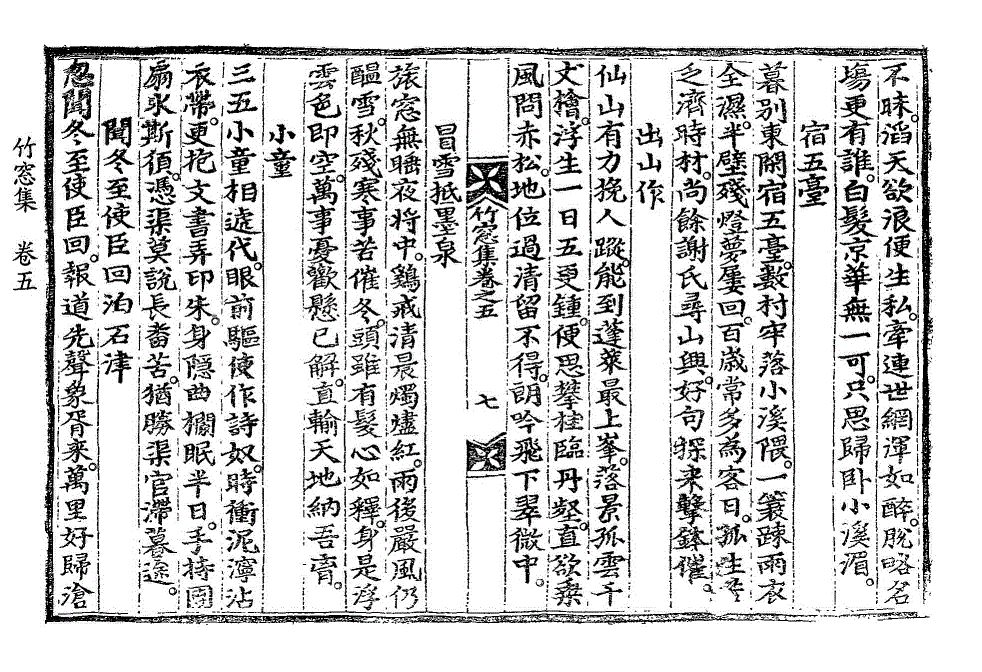 不昧。滔天欲浪便生私。牽連世網渾如醉。脫略名
塲更有誰。白髮京華無一可。只思歸卧小溪湄。
宿五臺
暮別東關宿五臺。數村牢落小溪隈。一簑踈雨衣
全濕。半壁殘燈夢屢回。百歲常多為客日。孤生
之濟時材。尚餘謝氏尋山興。好句探来擊鉢催。
出山作
仙山有力挽人蹤。能到蓬萊最上峯。落景孤雲千
丈檜。浮生一日五更鍾。便思攀桂臨丹壑。直欲乘
風問赤松。地位過清留不得。朗吟飛下翠微中。
竹窓集卷之五
七
冒雪抵墨泉
旅窓無睡夜将中。鷄戒清晨燭燼紅。雨後嚴風仍
醞雪。秋殘寒事苦催冬。頭雖有髮心如釋。身是浮
雲色即空。萬事憂歡懸已解。直輸天地納吾膏。
小童
三五小童相遞代。眼前驅使作詩奴。時衝泥濘沾
衣帶。更抱文書弄印朱。身隱曲欄眠半日。手持團
扇永斯須。憑渠莫說長畨苦。猶勝渠官滯暮途。
聞冬至使臣回泊石津
忽聞冬至使臣回。報道先聲象胥来。萬里好歸滄
竹窓集 卷五